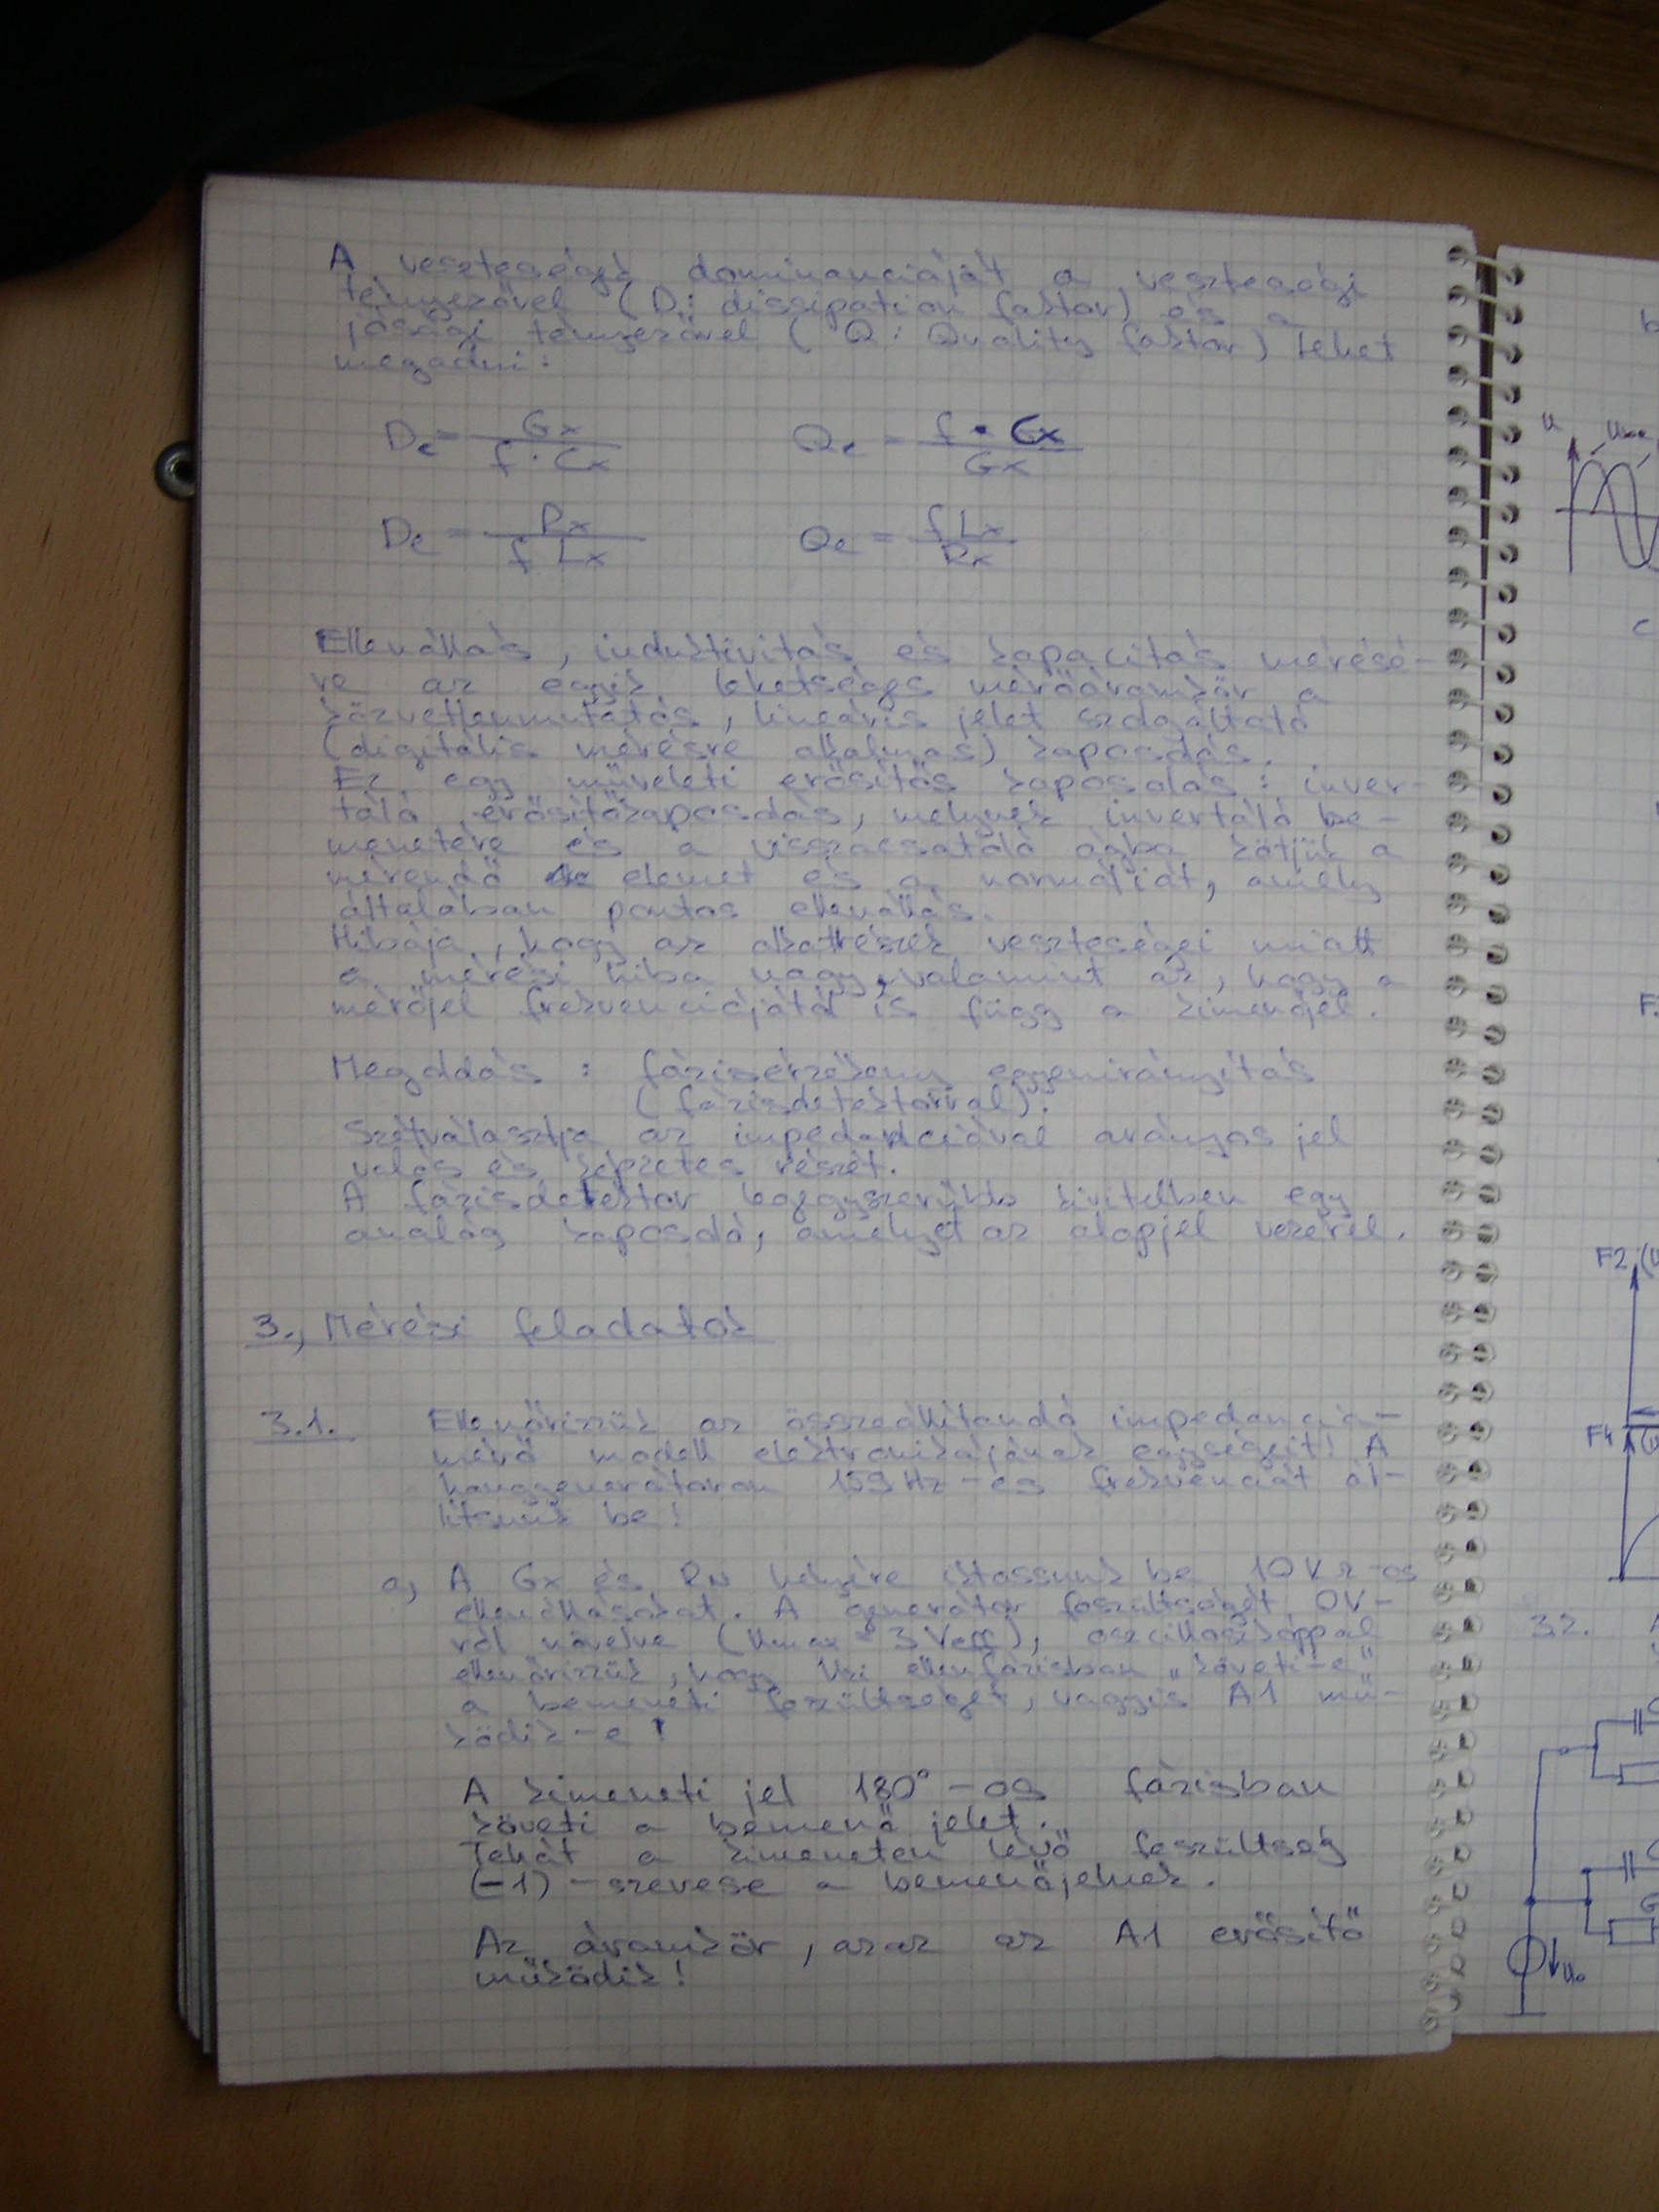 A veszteségek dominanciáját a veszteségi
tényezővel (D: dissipation faktor) és a
jósági tényezővel (Q: Quality faktor) lehet
megadni:
Dc = Gx / f · Cx    Qc = f · Cx / Gx
De = Rx / f Lx    Qe = f Lx / Rx
Ellenállás, induktivitás és kapacitás mérésé-
re az egyik lehetséges mérőáramkör a
közvetlenmutatós, lineáris jelet szolgáltató
(digitális mérésre alkalmas) kapcsolás.
Ez egy műveleti erősítős kapcsolás: inver-
táló erősítőkapcsolás, melynek invertáló be-
menetére és a visszacsatoló ágba kötjük a
mérendő elemet és a normáliát, amely
általában pontos ellenállás.
Hibája, hogy az alkatrészek veszteségei miatt
a mérési hiba nagy, valamint az, hogy a
mérőjel frekvenciájától is függ a kimenőjel.
Megoldás: fázisérzékeny egyenirányítás
(fázisdetektorral).
Szétválasztja az impedanciával arányos jel
valós és képzetes részét.
A fázisdetektor legegyszerűbb kivitelben egy
analóg kapcsoló, amelyet az alapjel vezérel.
3., Mérési feladatok
3.1. Ellenőrizzük az összeállítandó impedancia-
mérő modell elektronikájának egységeit! A
hanggenerátoron 159 Hz-es frekvenciát ál-
lítsunk be!
a, A Gx és RN helyére iktassunk be 10 kΩ-os
ellenállásokat. A generátor feszültségét 0V-
ról növelve (Umax = 3 Veff), oszcilloszkóppal
ellenőrizzük, hogy Uki ellenfázisban „követi-e”
a bemeneti feszültséget, vagyis A1 mű-
ködik-e!
A kimeneti jel 180°-os fázisban
követi a bemenő jelet.
Tehát a kimeneten lévő feszültség
(-1)-szerese a bemenőjelnek.
Az áramkör, azaz az A1 erősítő
működik!
U
F2
F4
3.2.
U0